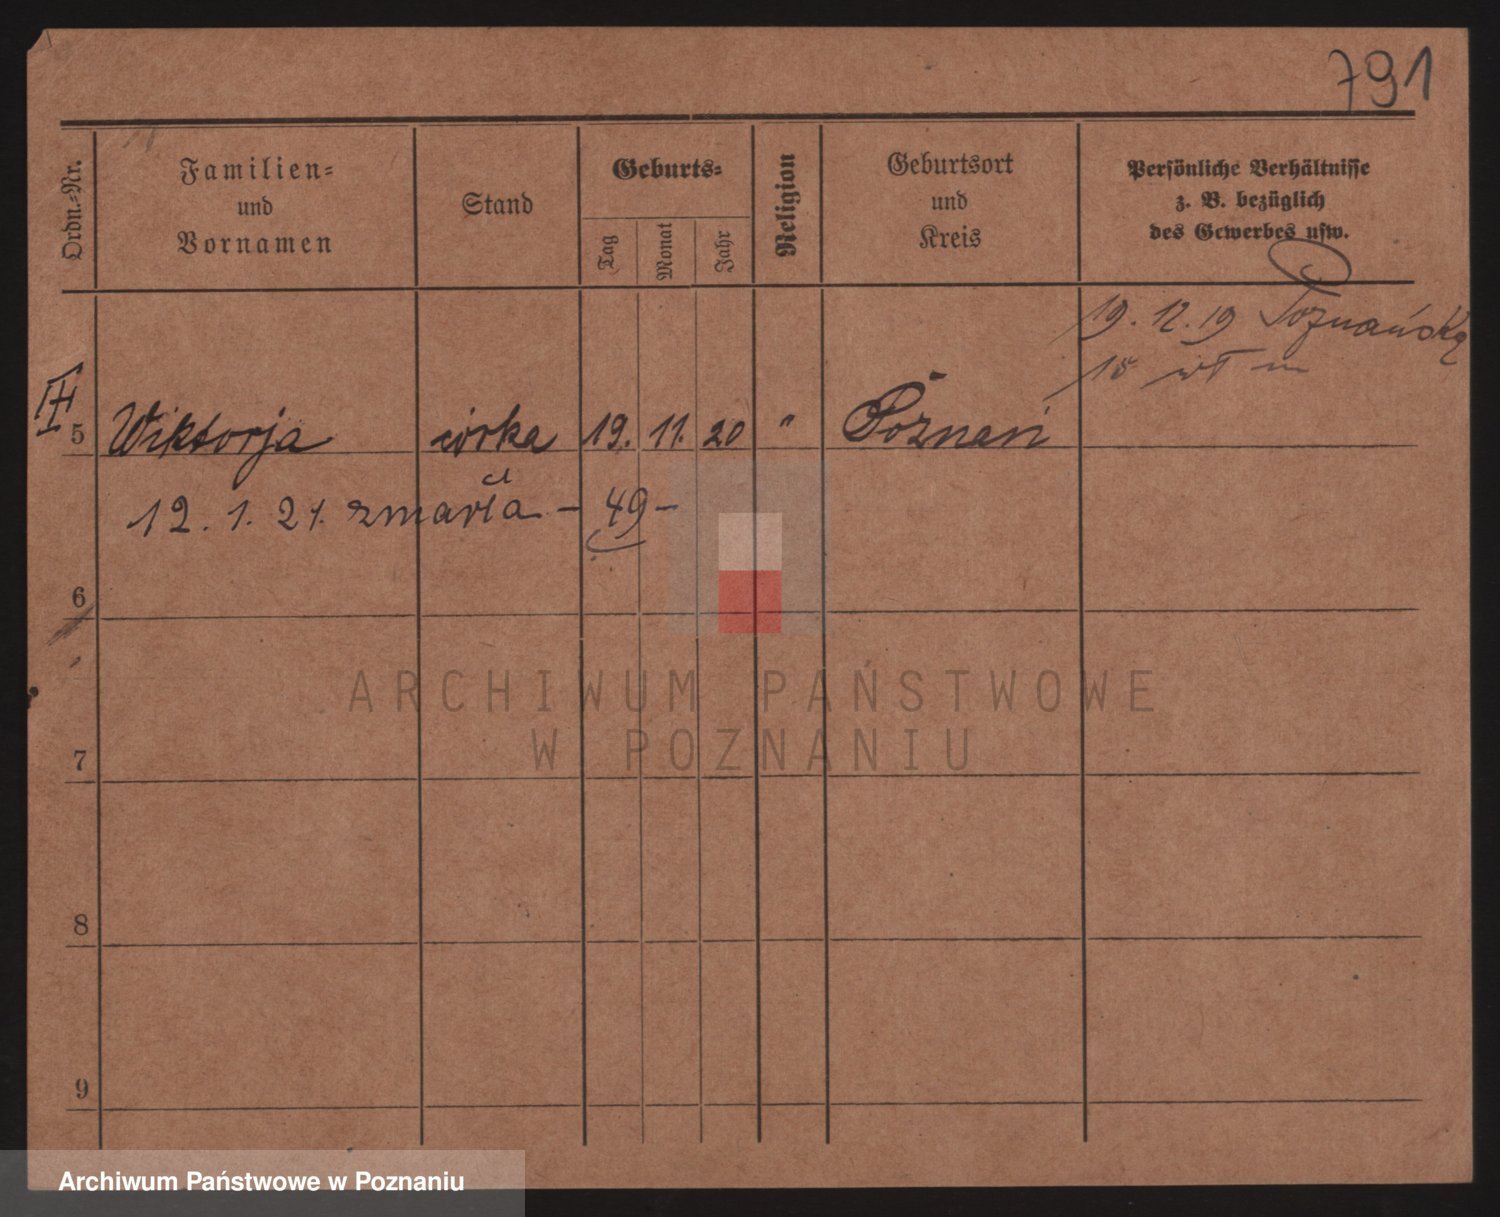 791
Ordn.-Nr.
Familien-
und
Vornamen
Stand
Geburts-
Tag
Monat
Jahr
Religion
Geburtsort
und
Kreis
Persönliche Verhältnisse
z. B. bezüglich
des Gewerbes usw.
19. 12. 19 Poznańską
15
5 Wiktorja córka 19. 11. 20 " Poznań
12. 1. 21. zmarła – 49 –
6
7
8
9
ARCHIWUM PAŃSTWOWE
W POZNANIU
Archiwum Państwowe w Poznaniu